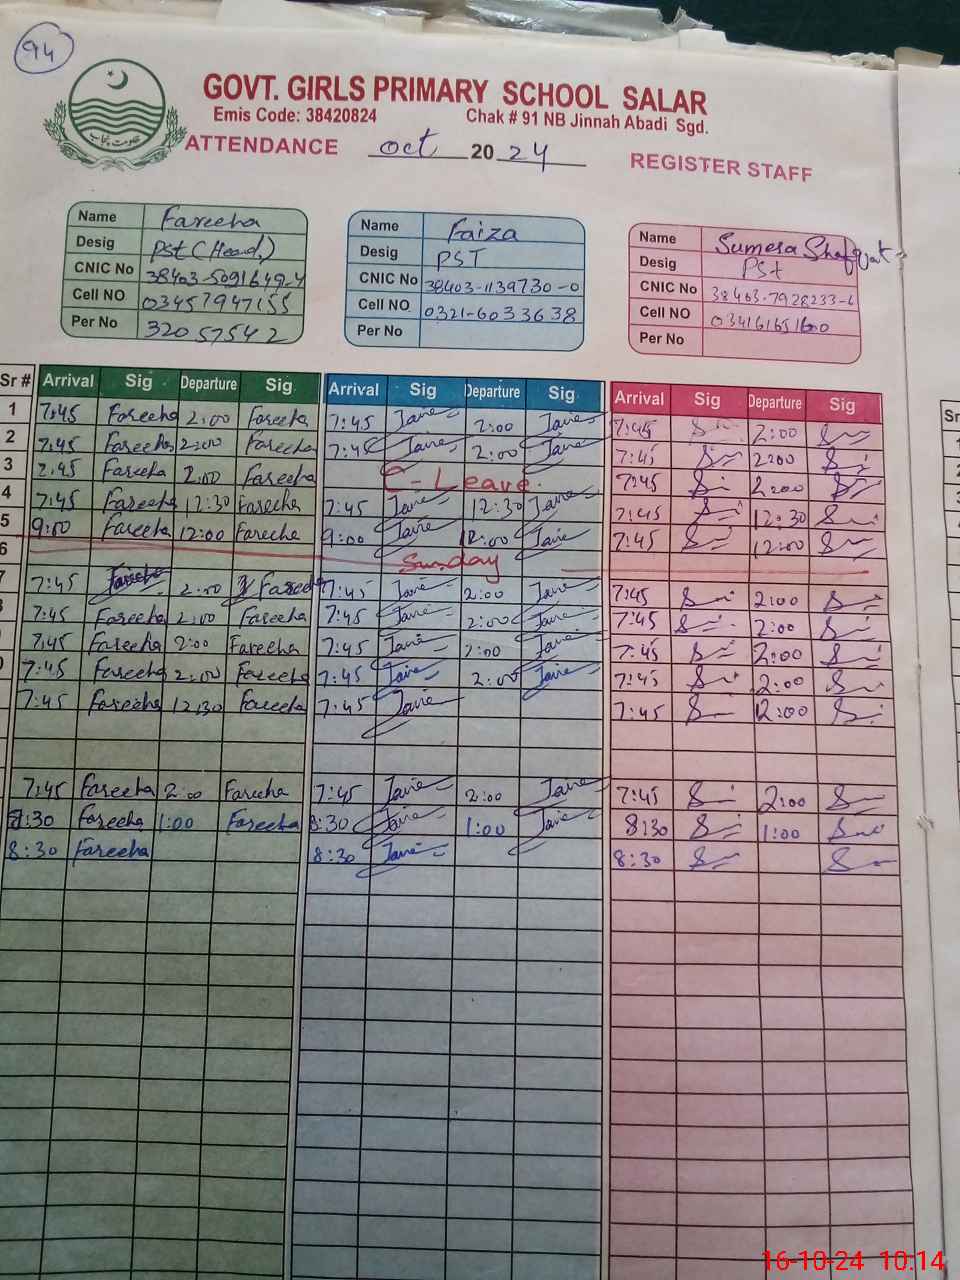 94
GOVT. GIRLS PRIMARY SCHOOL SALAR
Emis Code: 38420824 Chak # 91 NB Jinnah Abadi Sgd.
حکومت پنجاب
ATTENDANCE oct 2024 REGISTER STAFF
Name Fareeha
Desig PSt (Head)
CNIC No 38403-5091649-4
Cell NO 03457947155
Per No 32057542
Name Faiza
Desig PST
CNIC No 38403-1139730-0
Cell NO 0321-6033638
Per No
Name Sumera Shafquat
Desig PSt
CNIC No 38403-7928233-6
Cell NO
Per No
Sr # Arrival Sig Departure Sig Arrival Sig Departure Sig Arrival Sig Departure Sig
1 7:45 Fareeha 2:00 Fareeha 7:45 2:00 7:45 2:00
2 7:45 Fareeha 2:00 Fareeha 7:45 2:00 7:45 2:00
3 7:45 Fareeha 2:00 Fareeha C-Leave 7:45 2:00
4 7:45 Fareeha 12:30 Fareeha 7:45 12:30 7:45 12:30
5 9:00 Fareeha 12:00 Fareeha 9:00 12:00 7:45 12:00
6 Sunday
7 7:45 Fareeha 2:00 Fareeha 7:45 2:00 7:45 2:00
7:45 Fareeha 2:00 Fareeha 7:45 2:00 7:45 2:00
7:45 Fareeha 2:00 Fareeha 7:45 2:00 7:45 2:00
7:45 Fareeha 2:00 Fareeha 7:45 2:00 7:45 2:00
7:45 Fareeha 12:30 Fareeha 7:45 7:45 12:00
7:45 Fareeha 2:00 Fareeha 7:45 2:00 7:45 2:00
8:30 Fareeha 1:00 Fareeha 8:30 1:00 8:30 1:00
8:30 Fareeha 8:30 8:30
Sr
16-10-24 10:14